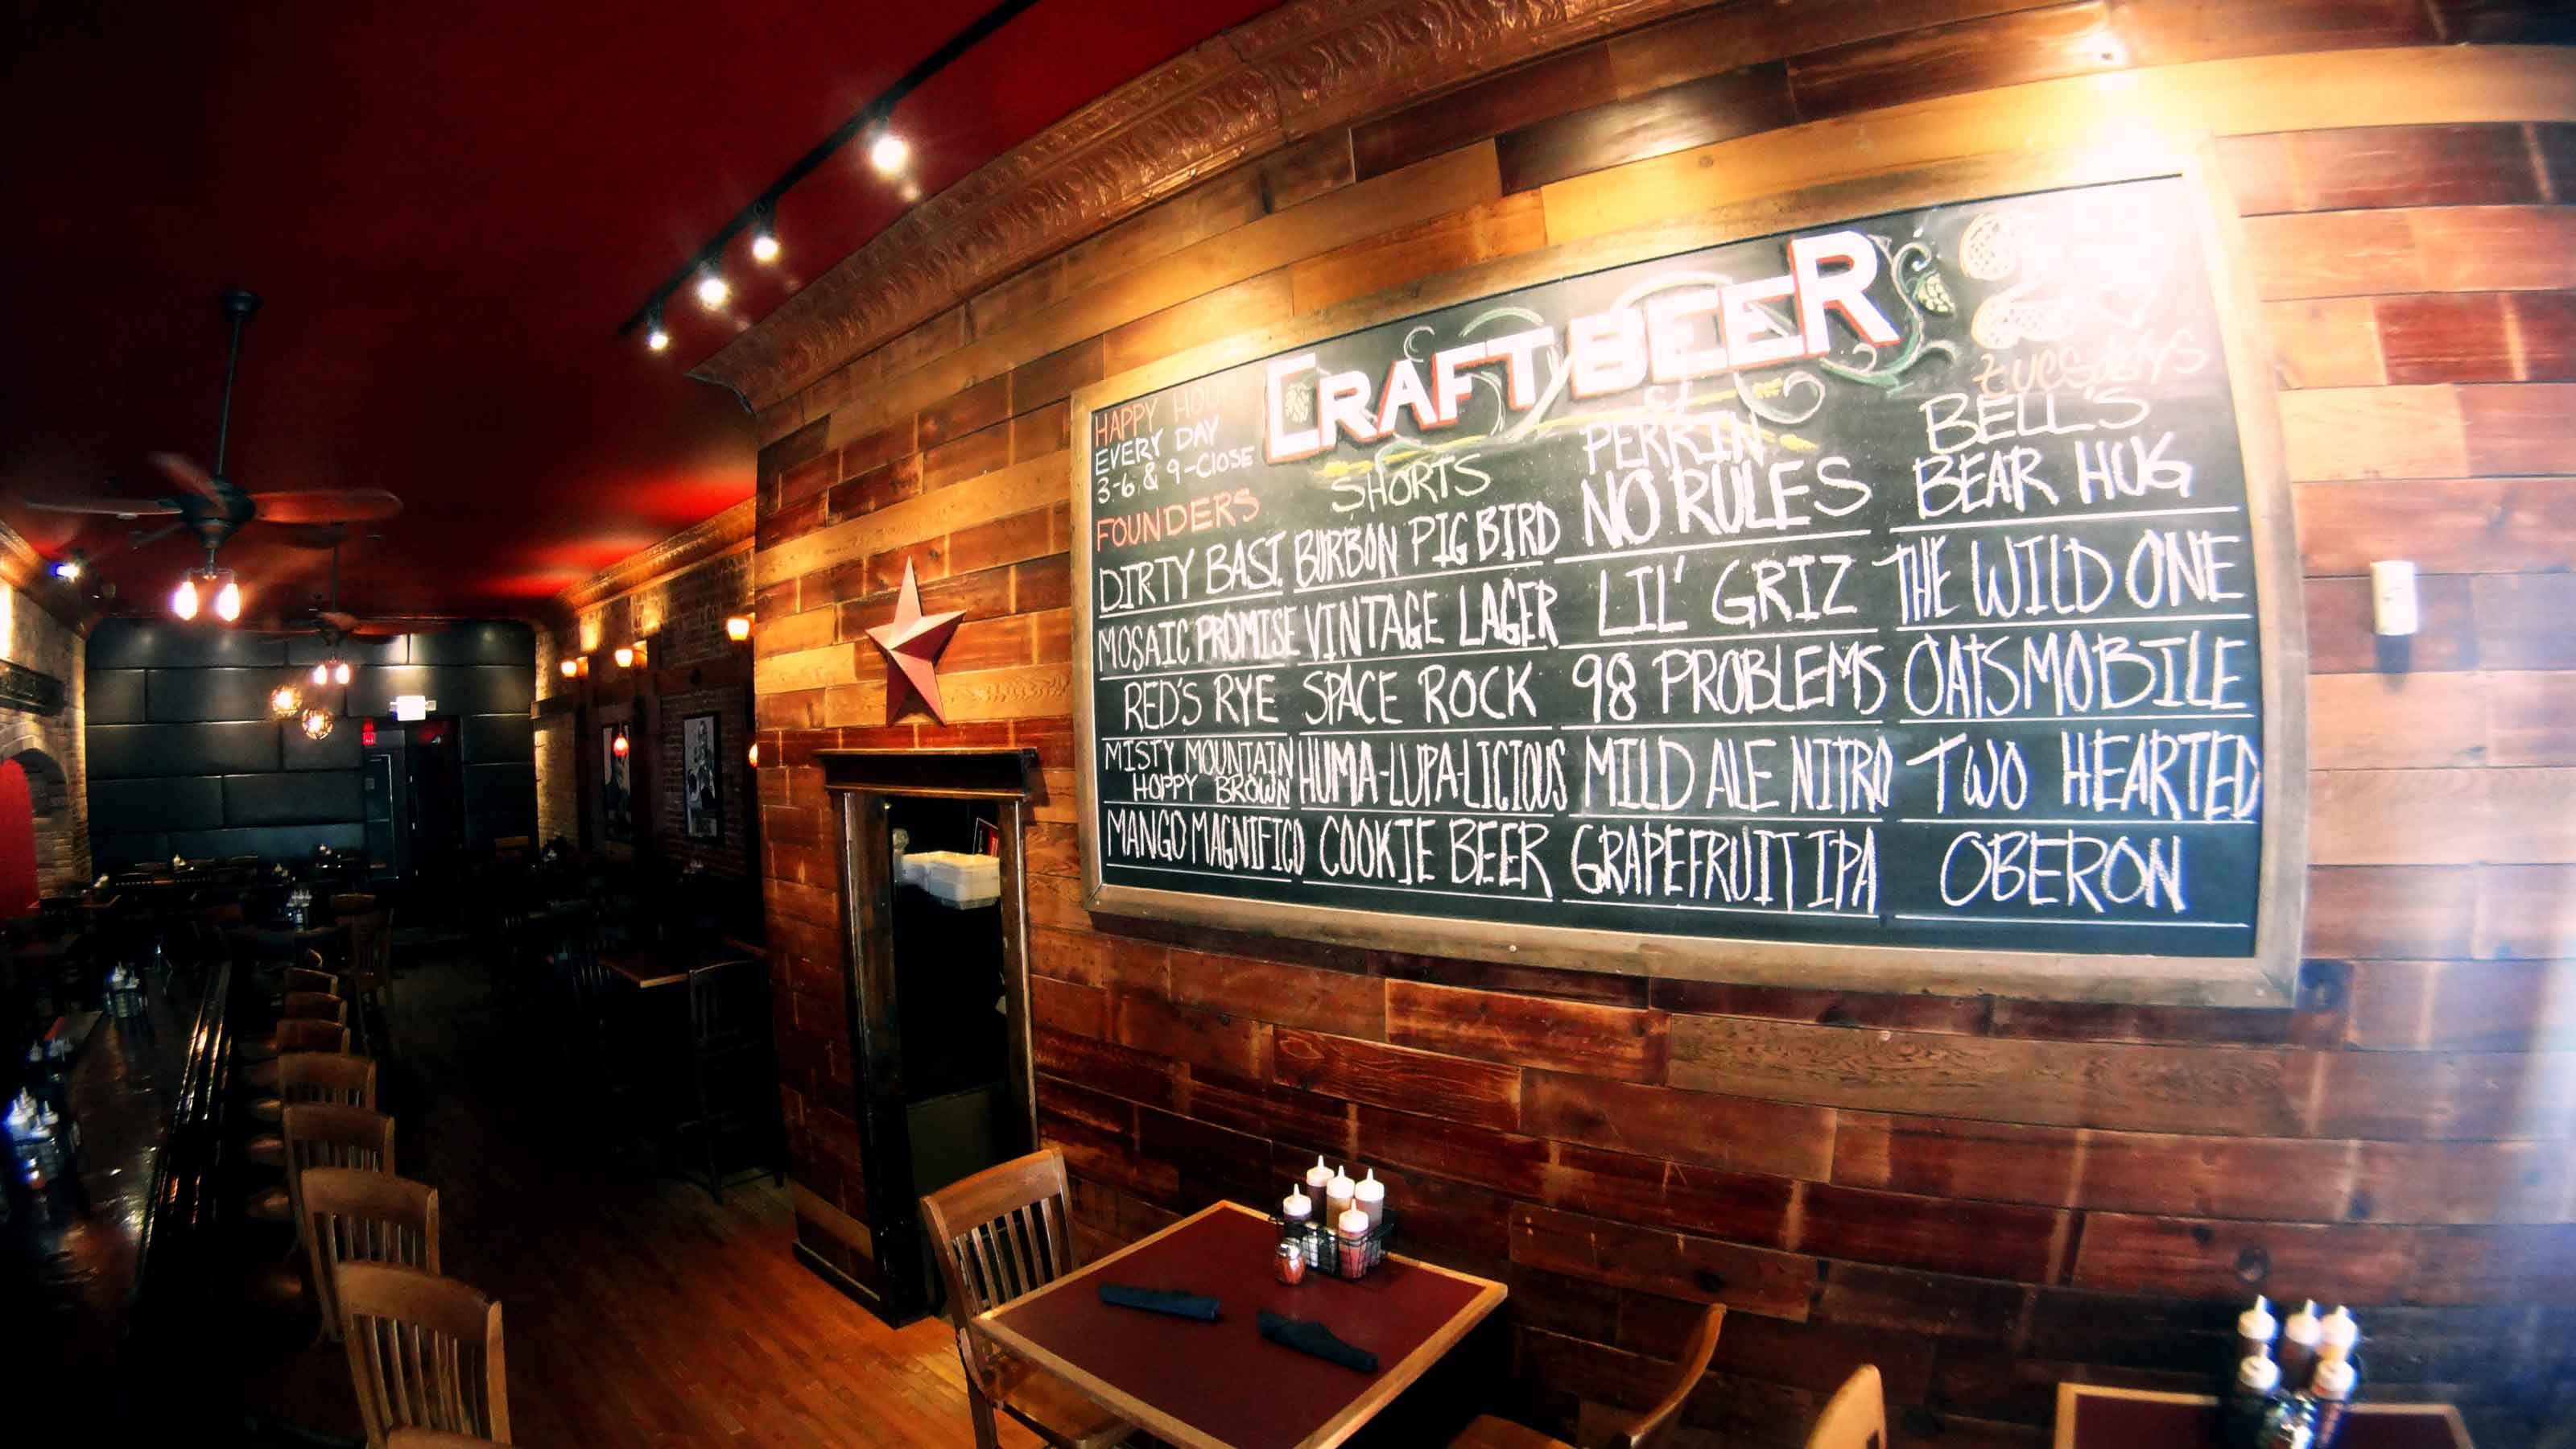 CRAFT BEER
HAPPY HOU
EVERY DAY
3-6 & 9-CLOSE
FOUNDERS
DIRTY BAST.
MOSAIC PROMISE
RED'S RYE
MISTY MOUNTAIN
HOPPY BROWN
MANGO MAGNIFICO
SHORTS
BURBON PIG BIRD
VINTAGE LAGER
SPACE ROCK
HUMA-LUPA-LICIOUS
COOKIE BEER
PERRIN
NO RULES
LIL' GRIZ
98 PROBLEMS
MILD ALE NITRO
GRAPEFRUIT IPA
TUESDAYS
BELL'S
BEAR HUG
THE WILD ONE
OATSMOBILE
TWO HEARTED
OBERON